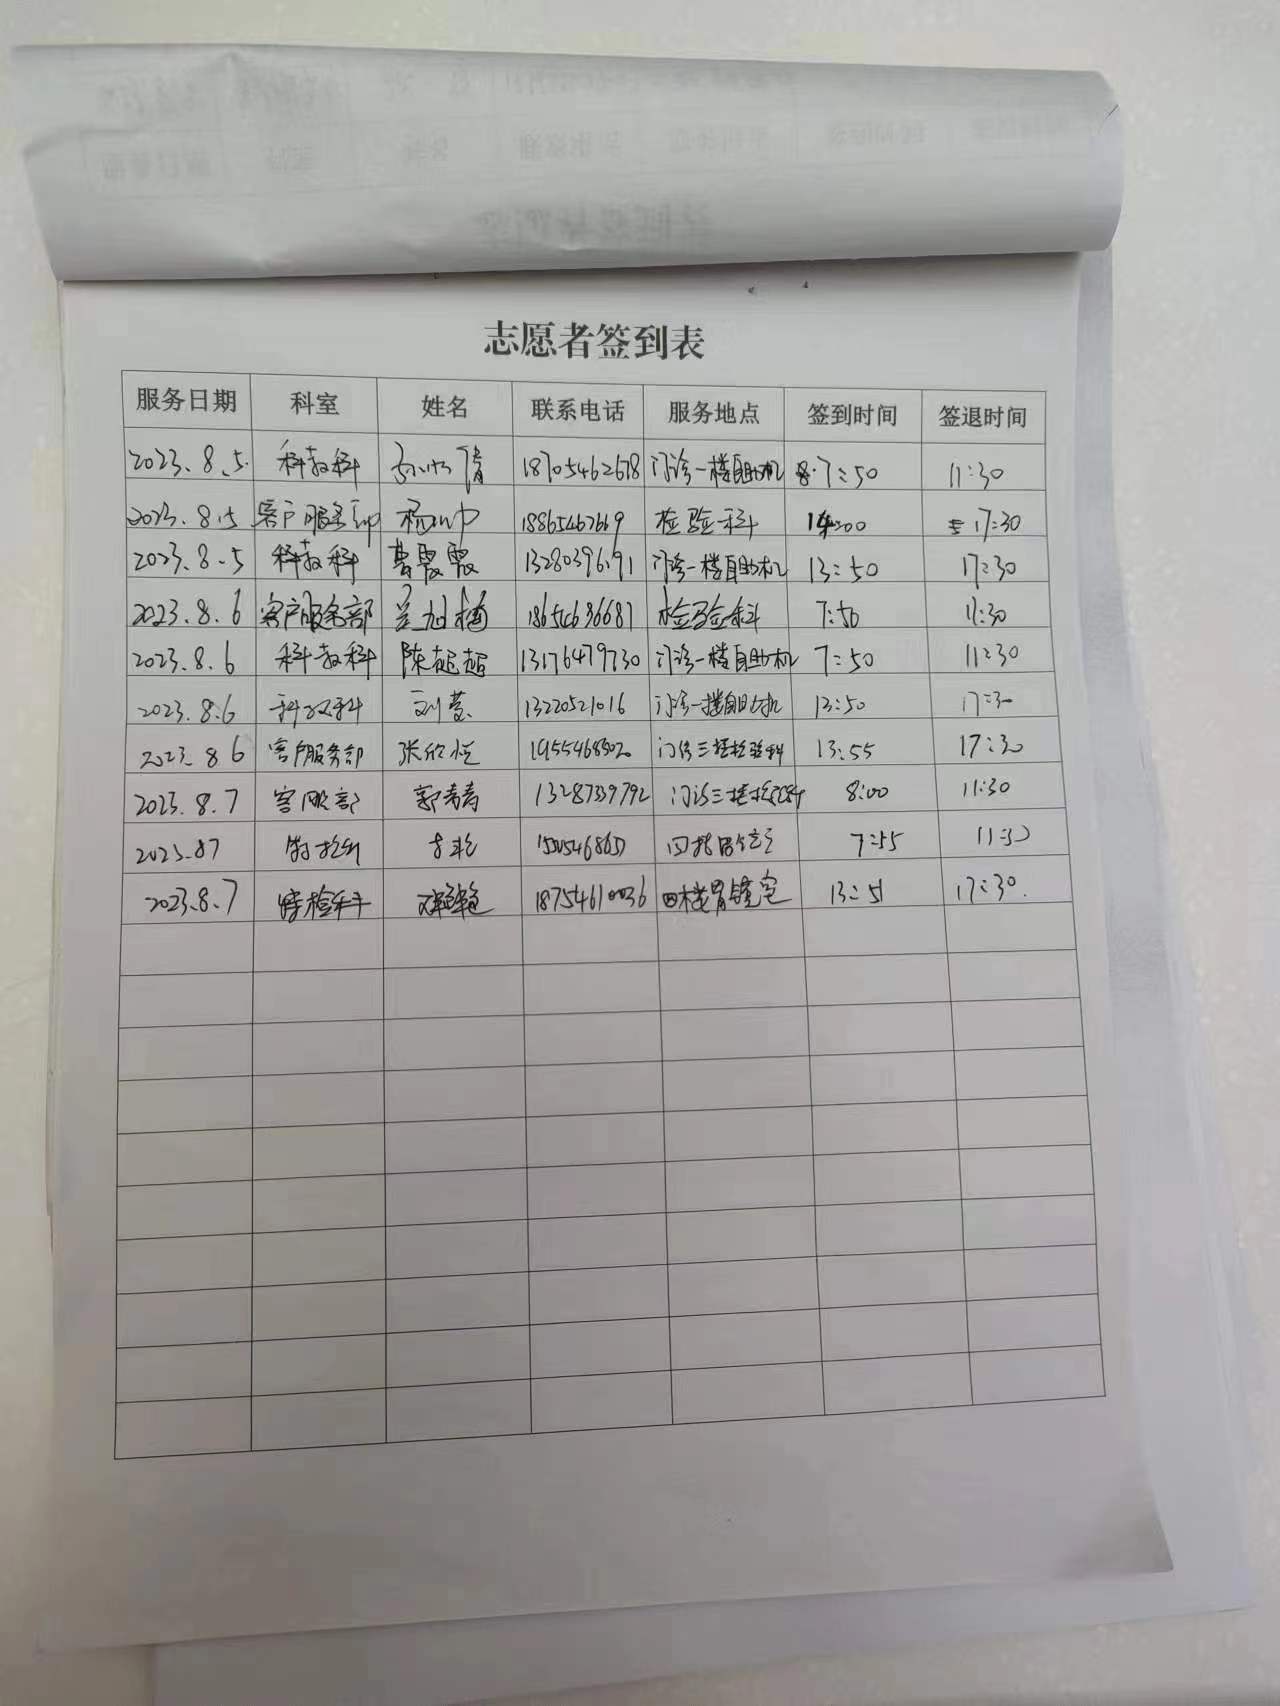 志愿者签到表
服务日期 科室 姓名 联系电话 服务地点 签到时间 签退时间
2023.8.5. 科教科 18705462618 门诊一楼自助机 7:50 11:30
2023.8.5 客户服务部 杨帅 18865467669 检验科 14:00 17:30
2023.8.5 科教科 曹霞霞 13280396191 门诊一楼自助机 13:50 17:30
2023.8.6 客户服务部 18654686681 检验科 7:50 11:30
2023.8.6 科教科 陈超超 13176479730 门诊一楼自助机 7:50 11:30
2023.8.6 科教科 刘蔓 13220521016 门诊一楼自助机 13:50 17:30
2023.8.6 客户服务部 张欣悦 19554685020 门诊三楼检验科 13:55 17:30
2023.8.7 客服部 郭青青 13287339792 门诊三楼检验科 8:00 11:30
2023.8.7 特检科 四楼胃镜室 7:55 11:30
2023.8.7 特检科 18754610036 四楼胃镜室 13:51 17:30.